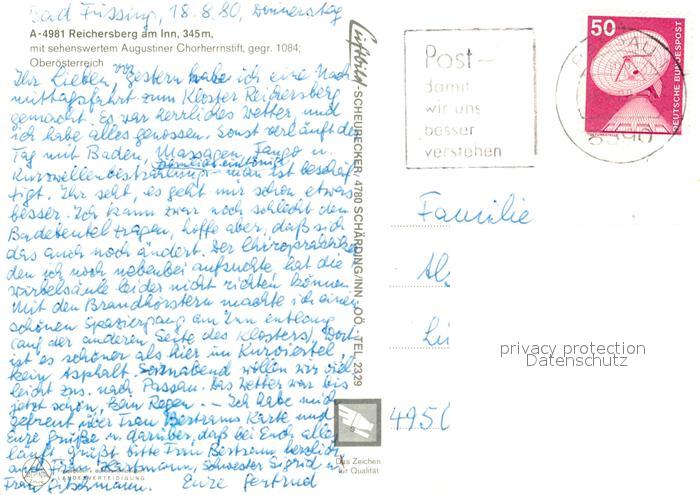 Bad Füssing, 18.8.80, Donnerstag
A-4981 Reichersberg am Inn, 345 m,
mit sehenswertem Augustiner Chorherrnstift, gegr. 1084;
Oberösterreich
Ihr Lieben, gestern habe ich eine Nach-
mittagsfahrt zum Kloster Reichersberg
gemacht. Es war herrliches Wetter, und
ich habe alles genossen. Sonst verläuft der
Tag mit Baden, Massagen, Fango u.
Kurzwellenbestrahlung - man ist beschäf-
tigt. Ihr seht, es geht mir schon etwas
besser. Ich kann zwar noch schlecht den
Badebeutel tragen, hoffe aber, daß sich
das auch noch ändert. Der Chiropraktiker
den ich noch nebenbei aufsuchte, hat die
Wirbelsäule leider nicht richten können.
Mit den Brandhorstern machte ich einen
schönen Spaziergang am Inn entlang
(auf der anderen Seite des Klosters). Dort
ist es schöner als hier im Kurviertel,
kein Asphalt. Sonnabend wollen wir viel-
leicht zus. nach Passau. Das Wetter war bis
jetzt schön, kein Regen. - Ich habe mich
gefreut über Frau Bertrams Karte und
Eure Grüße u. darüber, daß bei Euch alles
läuft. Grüßt bitte Frau Bertram herzlich
auch Frau Hartmann, Schwester Sigrid u.
Frau
Eure Gertrud
LANDESVERTEIDIGUNG
Luftbild-SCHEURECKER, 4780 SCHÄRDING/INN, OÖ. - TEL. 2329
Das Zeichen
für Qualität
Post-
damit
wir uns
besser
verstehen
50
DEUTSCHE BUNDESPOST
8390
Familie
Al
Lü
4950
privacy protection
Datenschutz